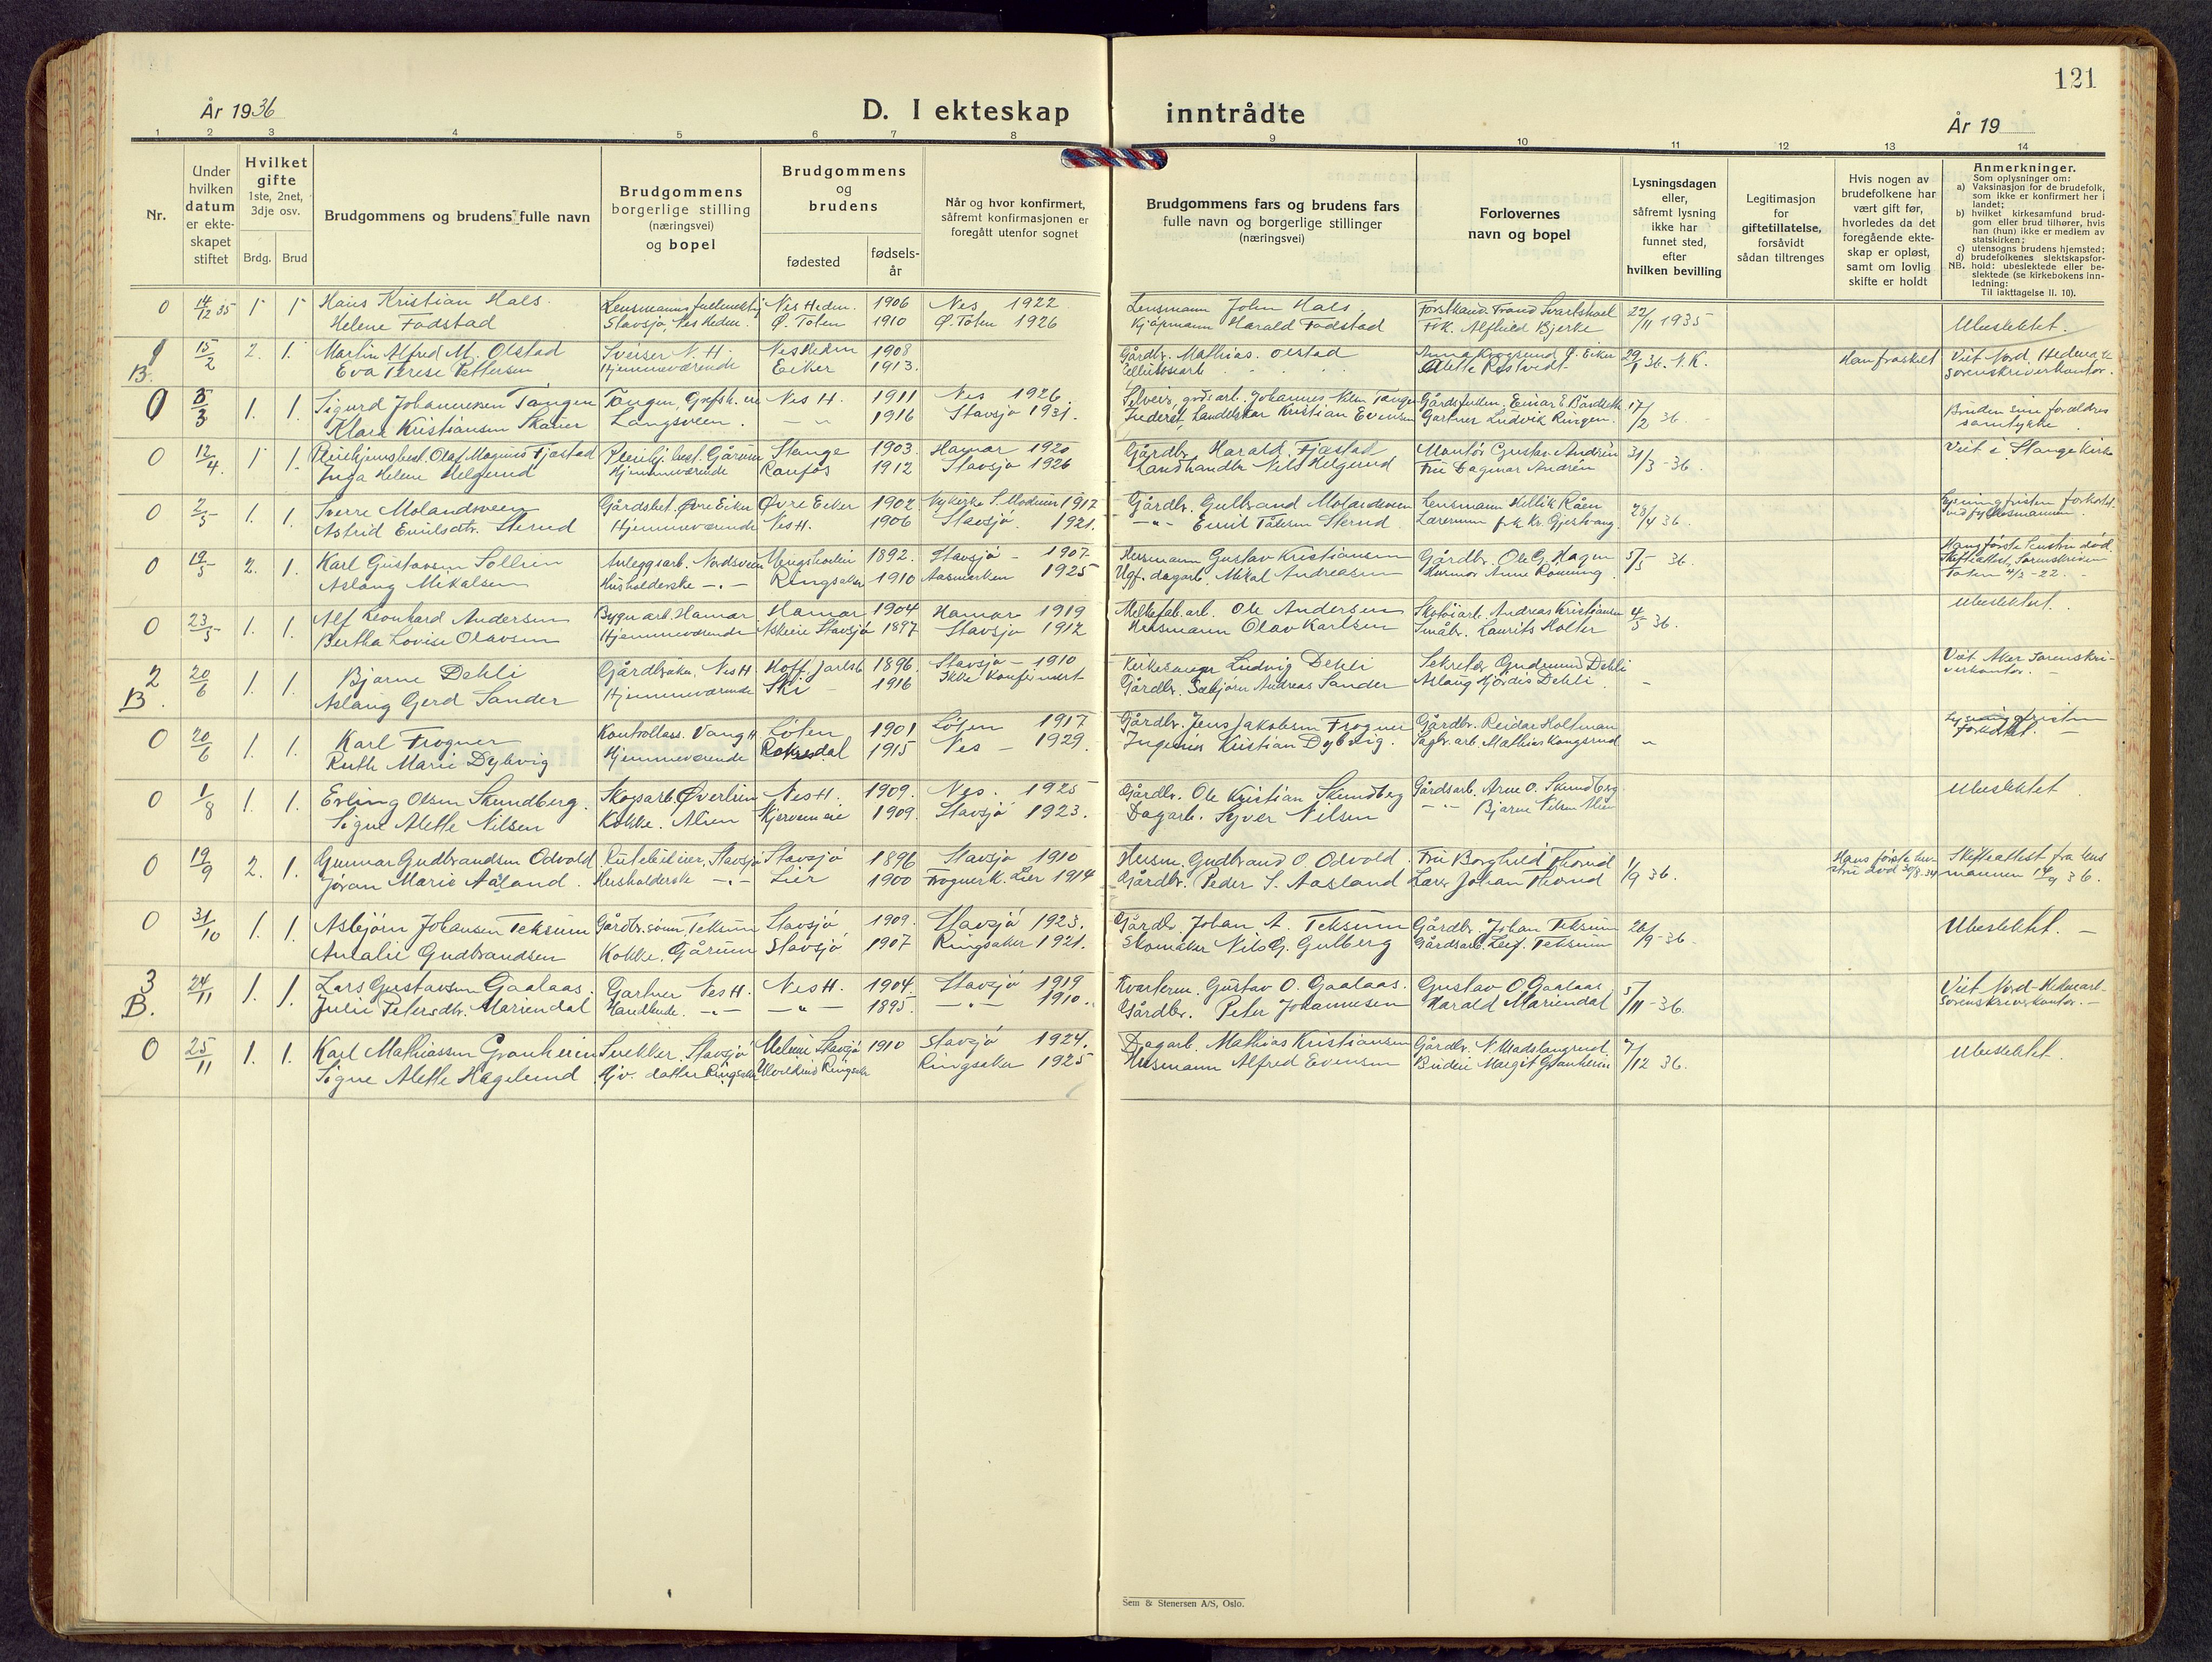 121
År 1936
D. I ekteskap inntrådte
År 19
1 2 3 4 5 6 7 8 9 10 11 12 13 14
Nr.
Under hvilken datum er ekteskapet stiftet
Hvilket gifte 1ste, 2net, 3dje osv.
Brdg. Brud
Brudgommens og brudens fulle navn
Brudgommens borgerlige stilling (næringsvei) og bopel
Brudgommens og brudens
fødested
fødselsår
Når og hvor konfirmert, såfremt konfirmasjonen er foregått utenfor sognet
Brudgommens fars og brudens fars fulle navn og borgerlige stillinger (næringsvei)
Forlovernes navn og bopel
Lysningsdagen eller, såfremt lysning ikke har funnet sted, efter hvilken bevilling
Legitimasjon for giftetillatelse, forsåvidt sådan tiltrenges
Hvis nogen av brudefolkene har vært gift før, hvorledes da det foregående ekteskap er opløst, samt om lovlig skifte er holdt
Anmerkninger.
Som oplysninger om:
a) Vaksinasjon for de brudefolk, som ikke er konfirmert her i landet;
b) hvilket kirkesamfund brudgom eller brud tilhører, hvis han (hun) ikke er medlem av statskirken;
c) utensogns brudens hjemsted;
d) brudefolkenes slektskapsforhold: ubeslektede eller beslektede (se kirkebokens innledning:
NB.
Til iakttagelse II. 10).
0 14/12 35 1 1 Hans Kristian Hals. Lensmannsfullmektig Nes Hedm. 1906 Nes 1922 Lensmann John Hals, 22/11 1935
Helene Fodstad Stavsjø, Nes Hedm. Ø. Toten 1910 Ø. Toten 1926 Kjøpmann Harald Fodstad Frk. Alfhild Bjerke Ubeslektet.
1 B. 15/2 2. 1. Martin Alfred M. Olstad Sveiser N. H. Nes Hedm 1908 Gårdbr. Mathias Olstad 29/1 36. Han fraskilt Viet Nord. Hedmark
Eva Terese Pettersen Hjemmeværende Eiker 1913. Alette Rostvedt Sorenskriverkontor.
0 8/3 1. 1. Sigurd Johannesen Tangen Tangen, Nes H. 1911 Nes 1926. Johannes Tangen 17/2 36. Bruden sine forældres
Klara Kristiansen Skauer Langsveen. 1916 Stavsjø 1931. Kristian Evensen Gartner Ludvik Ringen. samtykke
0 12/4. 1 1. Pleiehjemsbest. Olaf Magnus Fjæstad Pleiehj. best. Gårum Stange 1903. Hamar 1920 Gårdbr. Harald Fjæstad Montør Gustav Andrén 31/3-36. Viet i Stange Kirke
Inga Helene Helgerud Hjemmeværende Raufos 1912 Stavsjø 1926 Landhandler Nils Helgerud Fru Dagmar Andrén
0 2/5 1. 1. Sverre Molandsveen Gårdsbest. Øvre Eiker Øvre Eiker 1902. Nykirke S. Modum 1917 Gårdbr. Gulbrand Molandsveen Lensmann Råen 28/4 36. Lysningsfristen forkortet
Astrid Emilsdtr. Sterud Hjemmeværende Nes H. 1906 Stavsjø. 1921. Emil Sterud Gjestvang
0 19/5 2. 1. Karl Gustavsen Sollien Anleggsarb. Nordsveen 1892. Stavsjø - 1907- Husmann Gustav Kristiansen Gårdbr. Ole G. Hagen 5/5 36. Hans første hustru død
Aslaug Mikalsen Husholderske Ringsaker 1910 Aasmarken 1925 Mikal Andreasen Husmor Anne Rønning. Skifteattest, Sorenskriveren
Toten 4/3-22.
0 23/5 1. 1. Alf Leonhard Andersen Bygn.arb. Hamar Hamar 1904 Hamar 1919 Melkefab.arb. Ole Andersen Andreas Kristiansen 4/5 36. Ubeslektet.
Bertha Lovise Olavsen Hjemmeværende Stavsjø 1897 Stavsjø 1912 Husmann Olav Karlsen Småbr. Laurits Holter
2 B. 20/6 1. 1. Bjarne Dehli Gårdbruker, Nes H Hoff, Jarlsb. 1896. Stavsjø - 1910 Kirkesanger Ludvig Dehli Sekretær Gudmund Dehli Viet Aker Sorenskri-
Aslaug Gerd Sander Hjemmeværende Ski 1916 Ikke konfirmert Gårdbr. Andreas Sander Aslaug Hjørdis Dehli. - verkontor. -
0 20/6 1. 1. Karl Frogner Kontrollass. Vang H. Løten 1901 Løten 1917 Gårdbr. Jens Jakobsen Frogner Gårdbr. Reidar Holtman Lysningsfristen
Ruth Marie Dybvig Hjemmeværende 1915 Nes - 1929. Ingeniør Kristian Dybvig. Sagbr. arb. Mathias Kongsrud forkortet. -
0 1/8 1. 1. Erling Olsen Skundberg. Skogsarb. Øverlien Nes H. 1909. Nes. 1925 Gårdbr. Ole Kristian Skundberg Gårdsarb. Arne O. Skundberg Ubeslektet.
Signe Alette Nilsen Kokke. Alien 1909. Stavsjø 1923. Dagarb. Syver Nilsen Bjarne Nilsen
0 19/9 2. 1. Gunnar Gudbrandsen Odvold Rutebileier, Stavsjø Stavsjø 1896 Stavsjø 1910 Husm. Gudbrand O. Odvold. Fru Borghild Thorud 1/9 36. Hans første hustru død 30/8-34 Skifteattest fra lens
Jøran Marie Aaland. Husholderske Lier 1900 Frogner K. Lier 1914 Gårdbr. Peder S. Aasland Lærer Johan Thorud mannen 36.
0 31/10 1. 1. Asbjørn Johansen Teksum Gårdbr.sønn, Teksum Stavsjø 1909. Stavsjø 1923. Gårdbr. Johan A. Teksum Gårdbr. Johan Teksum 20/9-36. Ubeslektet. -
Amalie Gudbrandsen Kokke, Gårum Stavsjø 1907 Ringsaker 1921. Skomaker Nils G. Gulberg Gårdsarb. Leif. Teksum
3 B. 24/11 1. 1. Lars Gustavsen Gaalaas. Gartner Nes H. Nes H. 1904. Stavsjø 1919 Gustav O. Gaalaas. Gustav O. Gaalaas 5/11-36. Viet Nord-Hedmark-
Julie Petersdtr. Mariendal 1895 1910. Gårdbr. Peter Johannesen Harald Mariendal Sorenskriverkontor. -
0 25/11 1. 1. Karl Mathiassen Granherin Snekker. Stavsjø 1910 Stavsjø 1924. Dagarb. Mathias Kristiansen Gårdbr. 7/12 36. Ubeslektet.
Signe Alette Hagelund datter Ringsaker Ringsaker 1925 Husmann Alfred Evensen Budeie Margit Granherin
Sem & Stenersen A/S, Oslo.